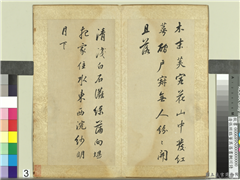 木末芙蓉花山中發紅
萼磵戶寂無人紛〻開
且落
清淺白石灘綠蒲向堪
把家住水東西浣紗明
月下